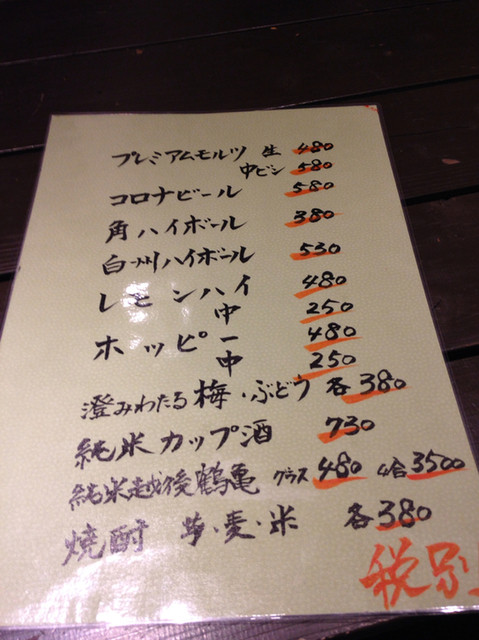 プレミアムモルツ 生 480
中ビン 580
コロナビール 580
角ハイボール 380
白州ハイボール 530
レモンハイ 480
中 250
ホッピー 480
中 250
澄みわたる梅・ぶどう 各380
純米カップ酒 730
純米越後鶴亀 グラス 480 4合 3500
焼酎 芋・麦・米 各380
税別